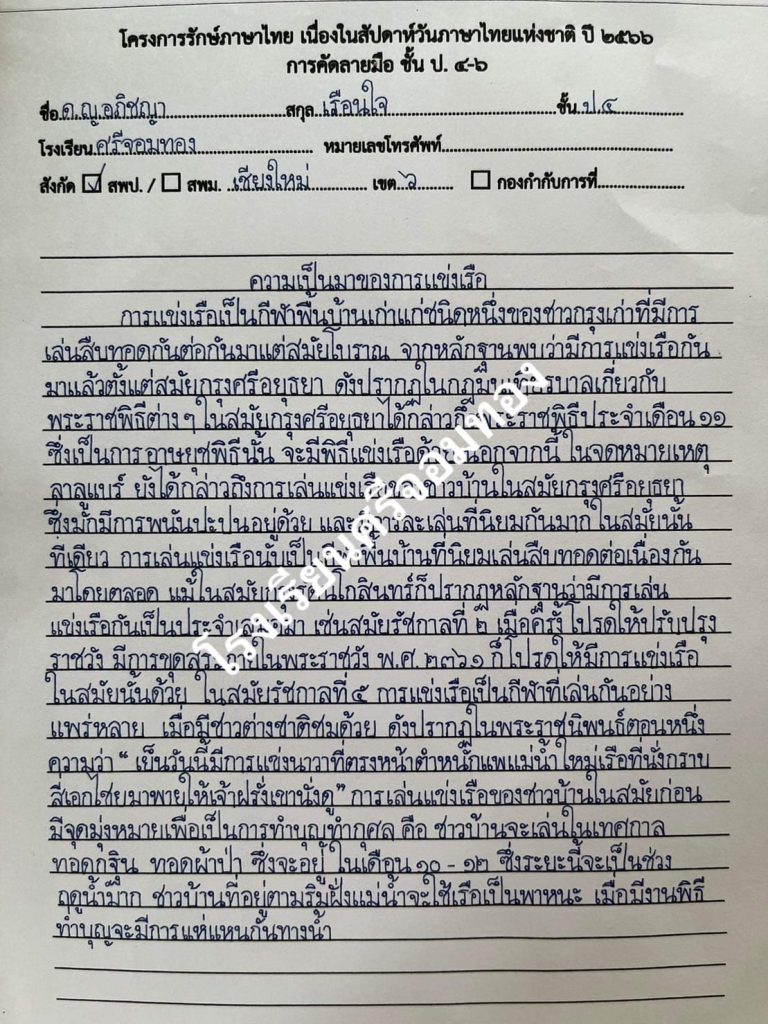 โครงการรักษ์ภาษาไทย เนื่องในสัปดาห์วันภาษาไทยแห่งชาติ ปี ๒๕๖๖
การคัดลายมือ ชั้น ป. ๔-๖
ชื่อ ด.ญ.อภิชญา สกุล เรือนใจ ชั้น ป.๔
โรงเรียน ศรีจอมทอง หมายเลขโทรศัพท์
สังกัด ☑ สพป. / ☐ สพม. เชียงใหม่ เขต ๖ ☐ กองกำกับการที่
ความเป็นมาของการแข่งเรือ
การแข่งเรือเป็นกีฬาพื้นบ้านเก่าแก่ชนิดหนึ่งของชาวกรุงเก่าที่มีการ
เล่นสืบทอดกันต่อกันมาแต่สมัยโบราณ จากหลักฐานพบว่ามีการแข่งเรือกัน
มาแล้วตั้งแต่สมัยกรุงศรีอยุธยา ดังปรากฏในกฎมนเทียรบาลเกี่ยวกับ
พระราชพิธีต่างๆ ในสมัยกรุงศรีอยุธยาได้กล่าวถึงพระราชพิธีประจำเดือน ๑๑
ซึ่งเป็นการอาษยุชพิธีนั้น จะมีพิธีแข่งเรือด้วย นอกจากนี้ ในจดหมายเหตุ
ลาลูแบร์ ยังได้กล่าวถึงการเล่นแข่งเรือของชาวบ้านในสมัยกรุงศรีอยุธยา
ซึ่งมักมีการพนันปะปนอยู่ด้วย และการละเล่นที่นิยมกันมาก ในสมัยนั้น
ทีเดียว การเล่นแข่งเรือนับเป็นกีฬาพื้นบ้านที่นิยมเล่นสืบทอดต่อเนื่องกัน
มาโดยตลอด แม้ในสมัยกรุงรัตนโกสินทร์ก็ปรากฏหลักฐานว่ามีการเล่น
แข่งเรือกันเป็นประจำเสมอมา เช่นสมัยรัชกาลที่ ๒ เมื่อครั้งโปรดให้ปรับปรุง
ราชวัง มีการขุดสระภายในพระราชวัง พ.ศ. ๒๓๖๑ ก็โปรดให้มีการแข่งเรือ
ในสมัยนั้นด้วย ในสมัยรัชกาลที่ ๕ การแข่งเรือเป็นกีฬาที่เล่นกันอย่าง
แพร่หลาย เมื่อมีชาวต่างชาติชมด้วย ดังปรากฏในพระราชนิพนธ์ตอนหนึ่ง
ความว่า “ เย็นวันนี้มีการแข่งนาวาที่ตรงหน้าตำหนักแพแม่น้ำใหม่เรือที่นั่งกราบ
สี่เอกไชยมาพายให้เจ้าฝรั่งเขานั่งดู” การเล่นแข่งเรือของชาวบ้านในสมัยก่อน
มีจุดมุ่งหมายเพื่อเป็นการทำบุญทำกุศล คือ ชาวบ้านจะเล่นในเทศกาล
ทอดกฐิน ทอดผ้าป่า ซึ่งจะอยู่ ในเดือน ๑๐ - ๑๒ ซึ่งระยะนี้จะเป็นช่วง
ฤดูน้ำมาก ชาวบ้านที่อยู่ตามริมฝั่งแม่น้ำจะใช้เรือเป็นพาหนะ เมื่อมีงานพิธี
ทำบุญจะมีการแห่แหนกันทางน้ำ
โรงเรียนศรีจอมทอง